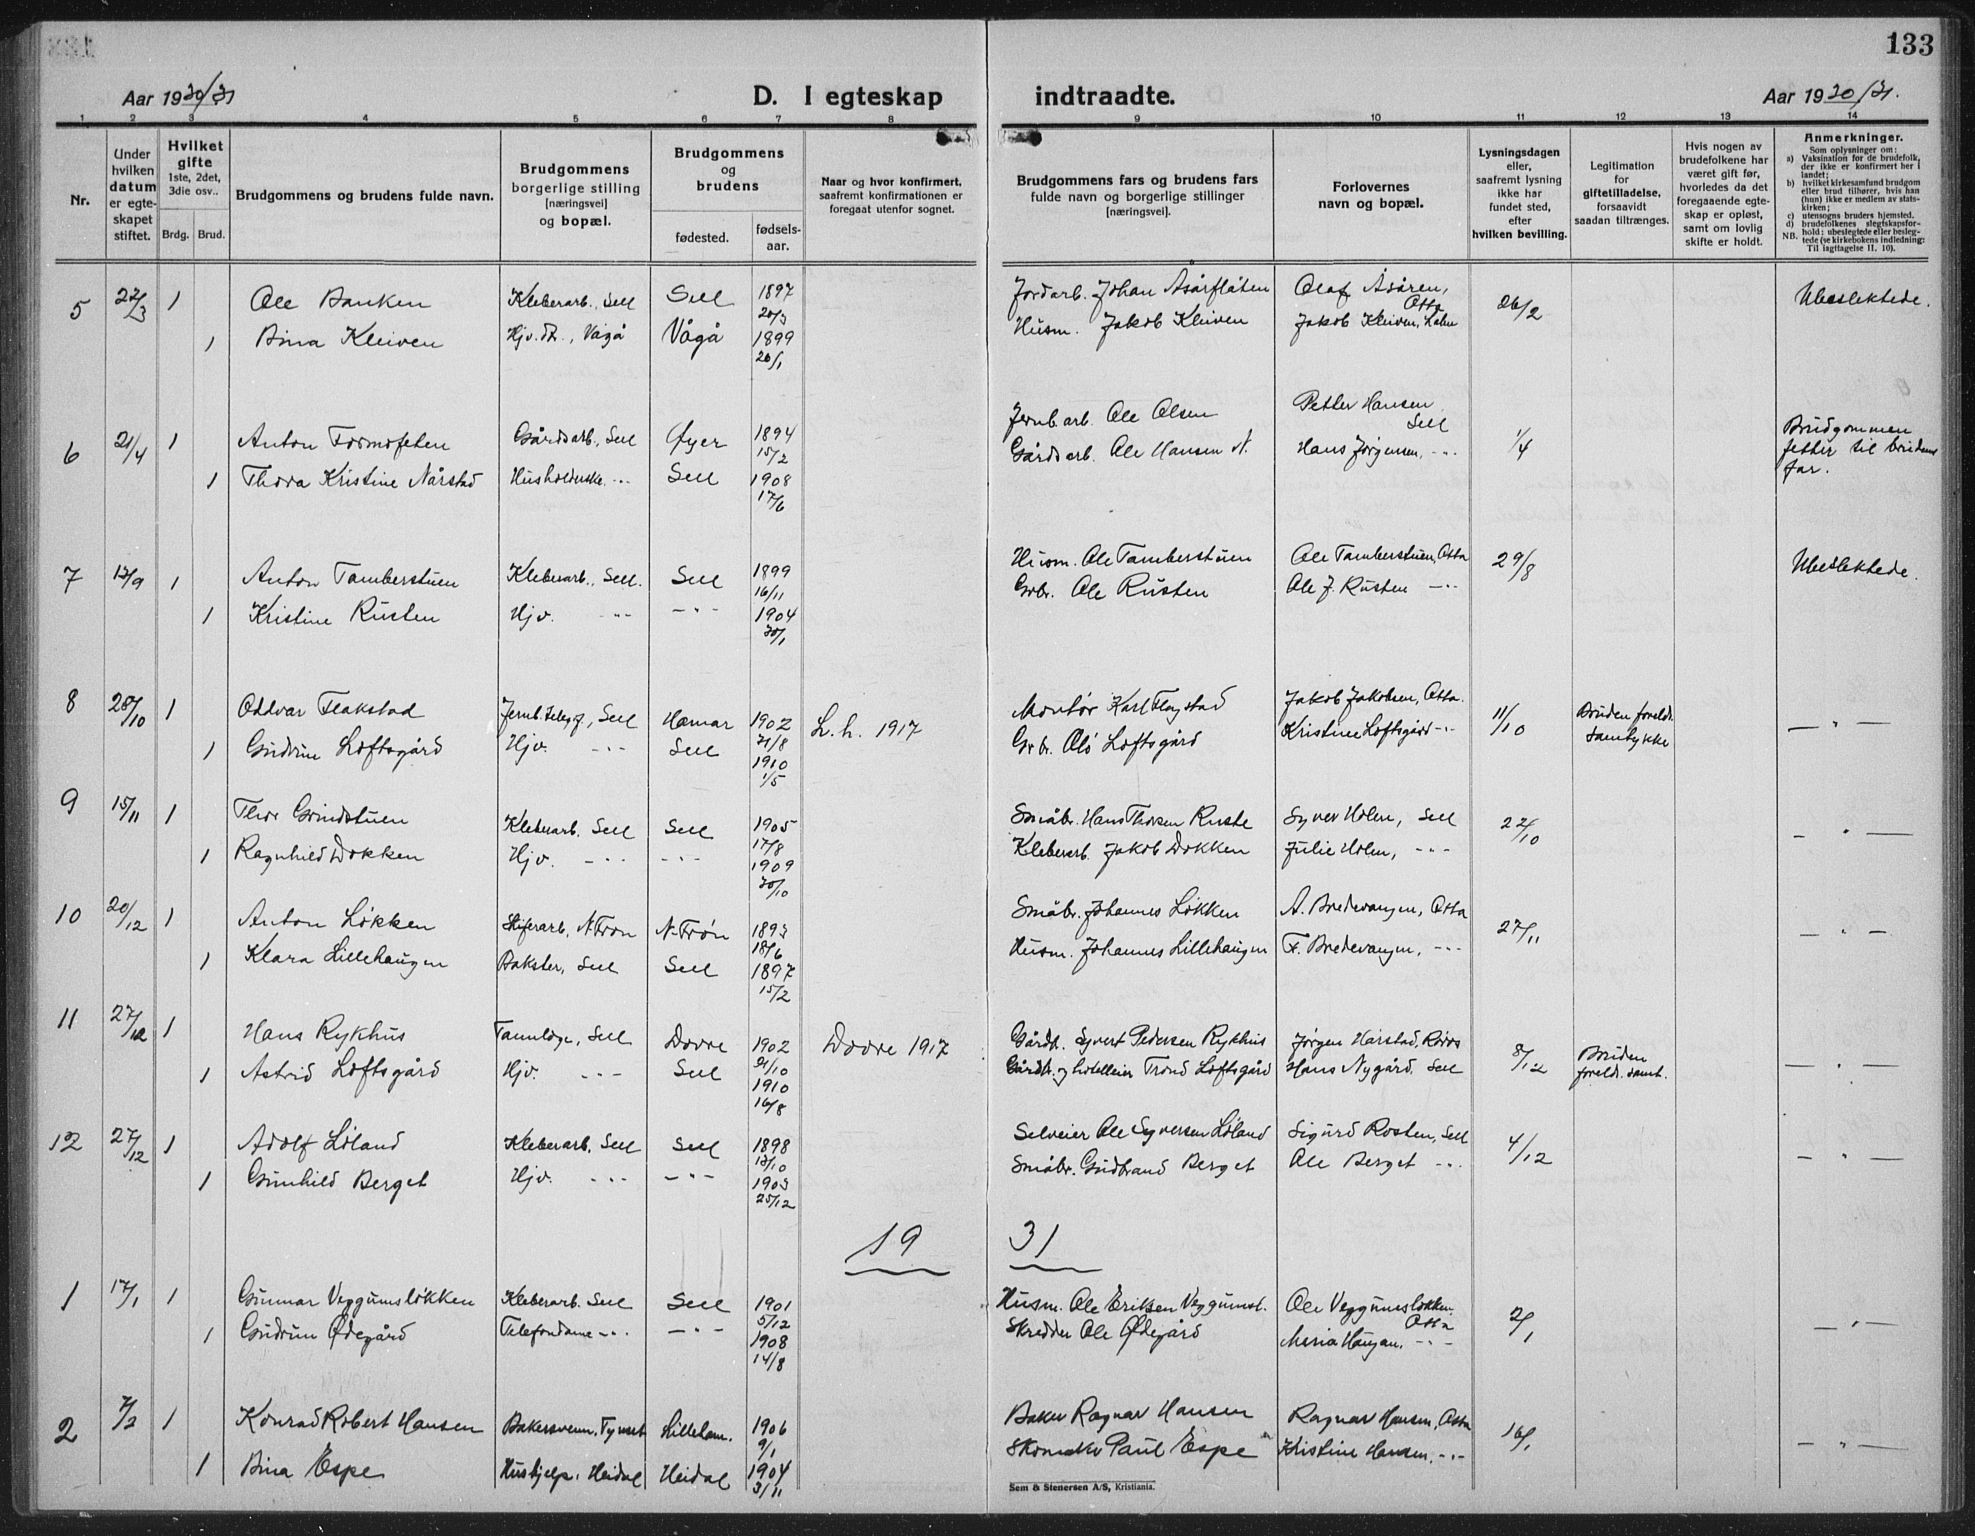 133
Aar 1930/31
D. I egteskap indtraadte.
Aar 1930/31.
1 2 3 4 5 6 7 8 9 10 11 12 13 14
Nr.
Under hvilken datum er egteskapet stiftet.
Hvilket gifte 1ste, 2det, 3die osv..
Brdg. Brud.
Brudgommens og brudens fulde navn.
Brudgommens borgerlige stilling [næringsvei] og bopæl.
Brudgommens og brudens
fødested. fødselsaar.
Naar og hvor konfirmert, saafremt konfirmationen er foregaat utenfor sognet.
Brudgommens fars og brudens fars fulde navn og borgerlige stillinger [næringsvei].
Forlovernes navn og bopæl.
Lysningsdagen eller, saafremt lysning ikke har fundet sted, efter hvilken bevilling.
Legitimation for giftetilladelse, forsaavidt saadan tiltrænges.
Hvis nogen av brudefolkene har været gift før, hvorledes da det foregaaende egteskap er opløst, samt om lovlig skifte er holdt.
Anmerkninger.
Som oplysninger om:
a) Vaksination for de brudefolk, der ikke er konfirmert her i landet;
b) hvilket kirkesamfund brudgom eller brud tilhører, hvis han (hun) ikke er medlem av statskirken;
c) utensogns bruders hjemsted.
d) brudefolkenes slegtskapsforhold; ubeslegtede eller beslegtede (se kirkebokens indledning: Til iagttagelse II. 10).
NB.
5 22/3 1 Ole Banken Kleberarb., Sell Sell 1897 20/3 Jordarb. Johan Åsårflåten Olaf Åsåren, Otta 26/2 Ubeslektede.
1 Bina Kleiven Hjv. Dr., Vågå Vågå 1899 20/1 Husm. Jakob Kleiven Jakob Kleiven,
6 21/4 1 Anton Formofeten Gårdsarb., Sell Øyer 1894 15/2 Jernb.arb. Ole Olsen Petter Hansen Sell 1/4 Brudgommen fetter til brudens far.
1 Thora Kristine Nårstad Husholderske -"- Sell 1908 17/6 Gårdsarb. Ole Hansen N. Hans Jørgensen, -"-
7 13/9 1 Anton Tamberstuen Kleberarb., Sell. Sell 1899 16/11 Husm. Ole Tamberstuen Ole Tamberstuen, Otta 29/8 Ubeslektede.
1 Kristine Rusten Hjv. -"- -"- 1904 30/1 Grbr. Ole Rusten Ole J. Rusten -"-
8 28/10 1 Oddvar Flakstad Jernb.telegf., Sell Hamar 1902 31/8 L.h. 1917 Montør Karl Flagstad Jakob Jakobsen, Otta. 11/10 Bruden foreldr. samtykke -"-
1 Gudrun Loftsgård Hjv. -"- Sell 1910 1/5 Grbr. Ole Loftsgård Kristine Loftsgård -"-
9 15/11 1 Thor Grindstuen Kleberarb. Sell Sell 1905 17/8 Småbr. Hans Thorsen Ruste Syver Holen, Sell 22/10 -"-
1 Ragnhild Dokken Hjv. -"- -"- 1909 30/10 Kleberarb. Jakob Dokken Julie Holen, -"-
10 20/12 1 Anton Løkken Skiferarb. N.Fron N-Fron 1893 18/6 Småbr. Johannes Løkken A. Bredevangen, Otta 27/11 -"-
1 Klara Lillehaugen Bakster, Sell Sell 1897 15/2 Husm. Johannes Lillehaugen F. Bredevangen, -"-
11 27/12 1 Hans Rykhus Tannlæge, Sell Dovre 1902 31/10 Dovre 1917 Gårdbr. Syvert Pedersen Rykhus Jørgen Hårstad, Røros 8/12 Bruden foreldr. samt. -"-
1 Astrid Loftsgård Hjv. -"- Sell 1910 16/8 Gårdbr. og hotelleier Trond Loftsgård Hans Nygård. Sell
12 27/12 1 Adolf Løland Kleberarb. Sell Sell 1898 13/10 Selveier Ole Syversen Løland Sigurd Rosten, Sell 4/12 -"-
1 Gunhild Berget Hjv. -"- -"- 1903 25/12 Småbr. Gudbrand Berget Ole Berget -"-
19 31
1 17/1 1 Gunnar Veggumsløkken Kleberarb. Sell Sell 1901 5/12 Husm. Ole Eriksen Veggumsl. Ole Veggumsløkken, Otta 2/1 -"-
1 Gudrun Ødegård Telefondame -"- -"- 1908 14/8 Skredder Ole Ødegård Maria Haugan. -"-
2 7/2 1 Konrad Robert Hansen Bakersvenn, Tynset Lilleham. 1906 9/1 Baker Ragnar Hansen Ragnar Hansen, Otta 16/1 -"-
1 Bina Espe Hushjelp, Heidal Heidal 1904 3/11 Skomaker Paul Espe Kristine Hansen, -"-
Sem & Stenersen A/S, Kristiania.